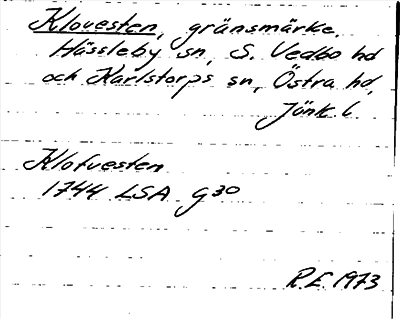 Klovesten, gränsmärke.
Hässleby sn, S. Vedbo hd
och Karlstorps sn, Östra hd,
Jönk. l.
Klofvesten
1744 LSA G30
R.E. 1973